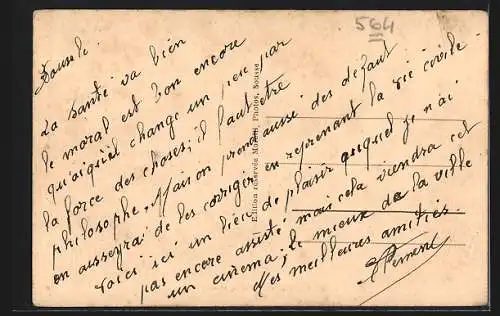 564
Bousule
La santé va bien
le moral est bon encore
quoiqu'il change un peu par
la force des choses; il faut être
philosophe. Mais on prend aussi des défaut
on aisseyrai de les corrigir en reprenant la vie civile.
Voici ici un lieu de plaisir auquel je n'ai
pas encore assisté mais cela viendra cet
un cinema; le mieux de la ville
Mes meilleures amitiés.
Edition réservée Photos, Sousse